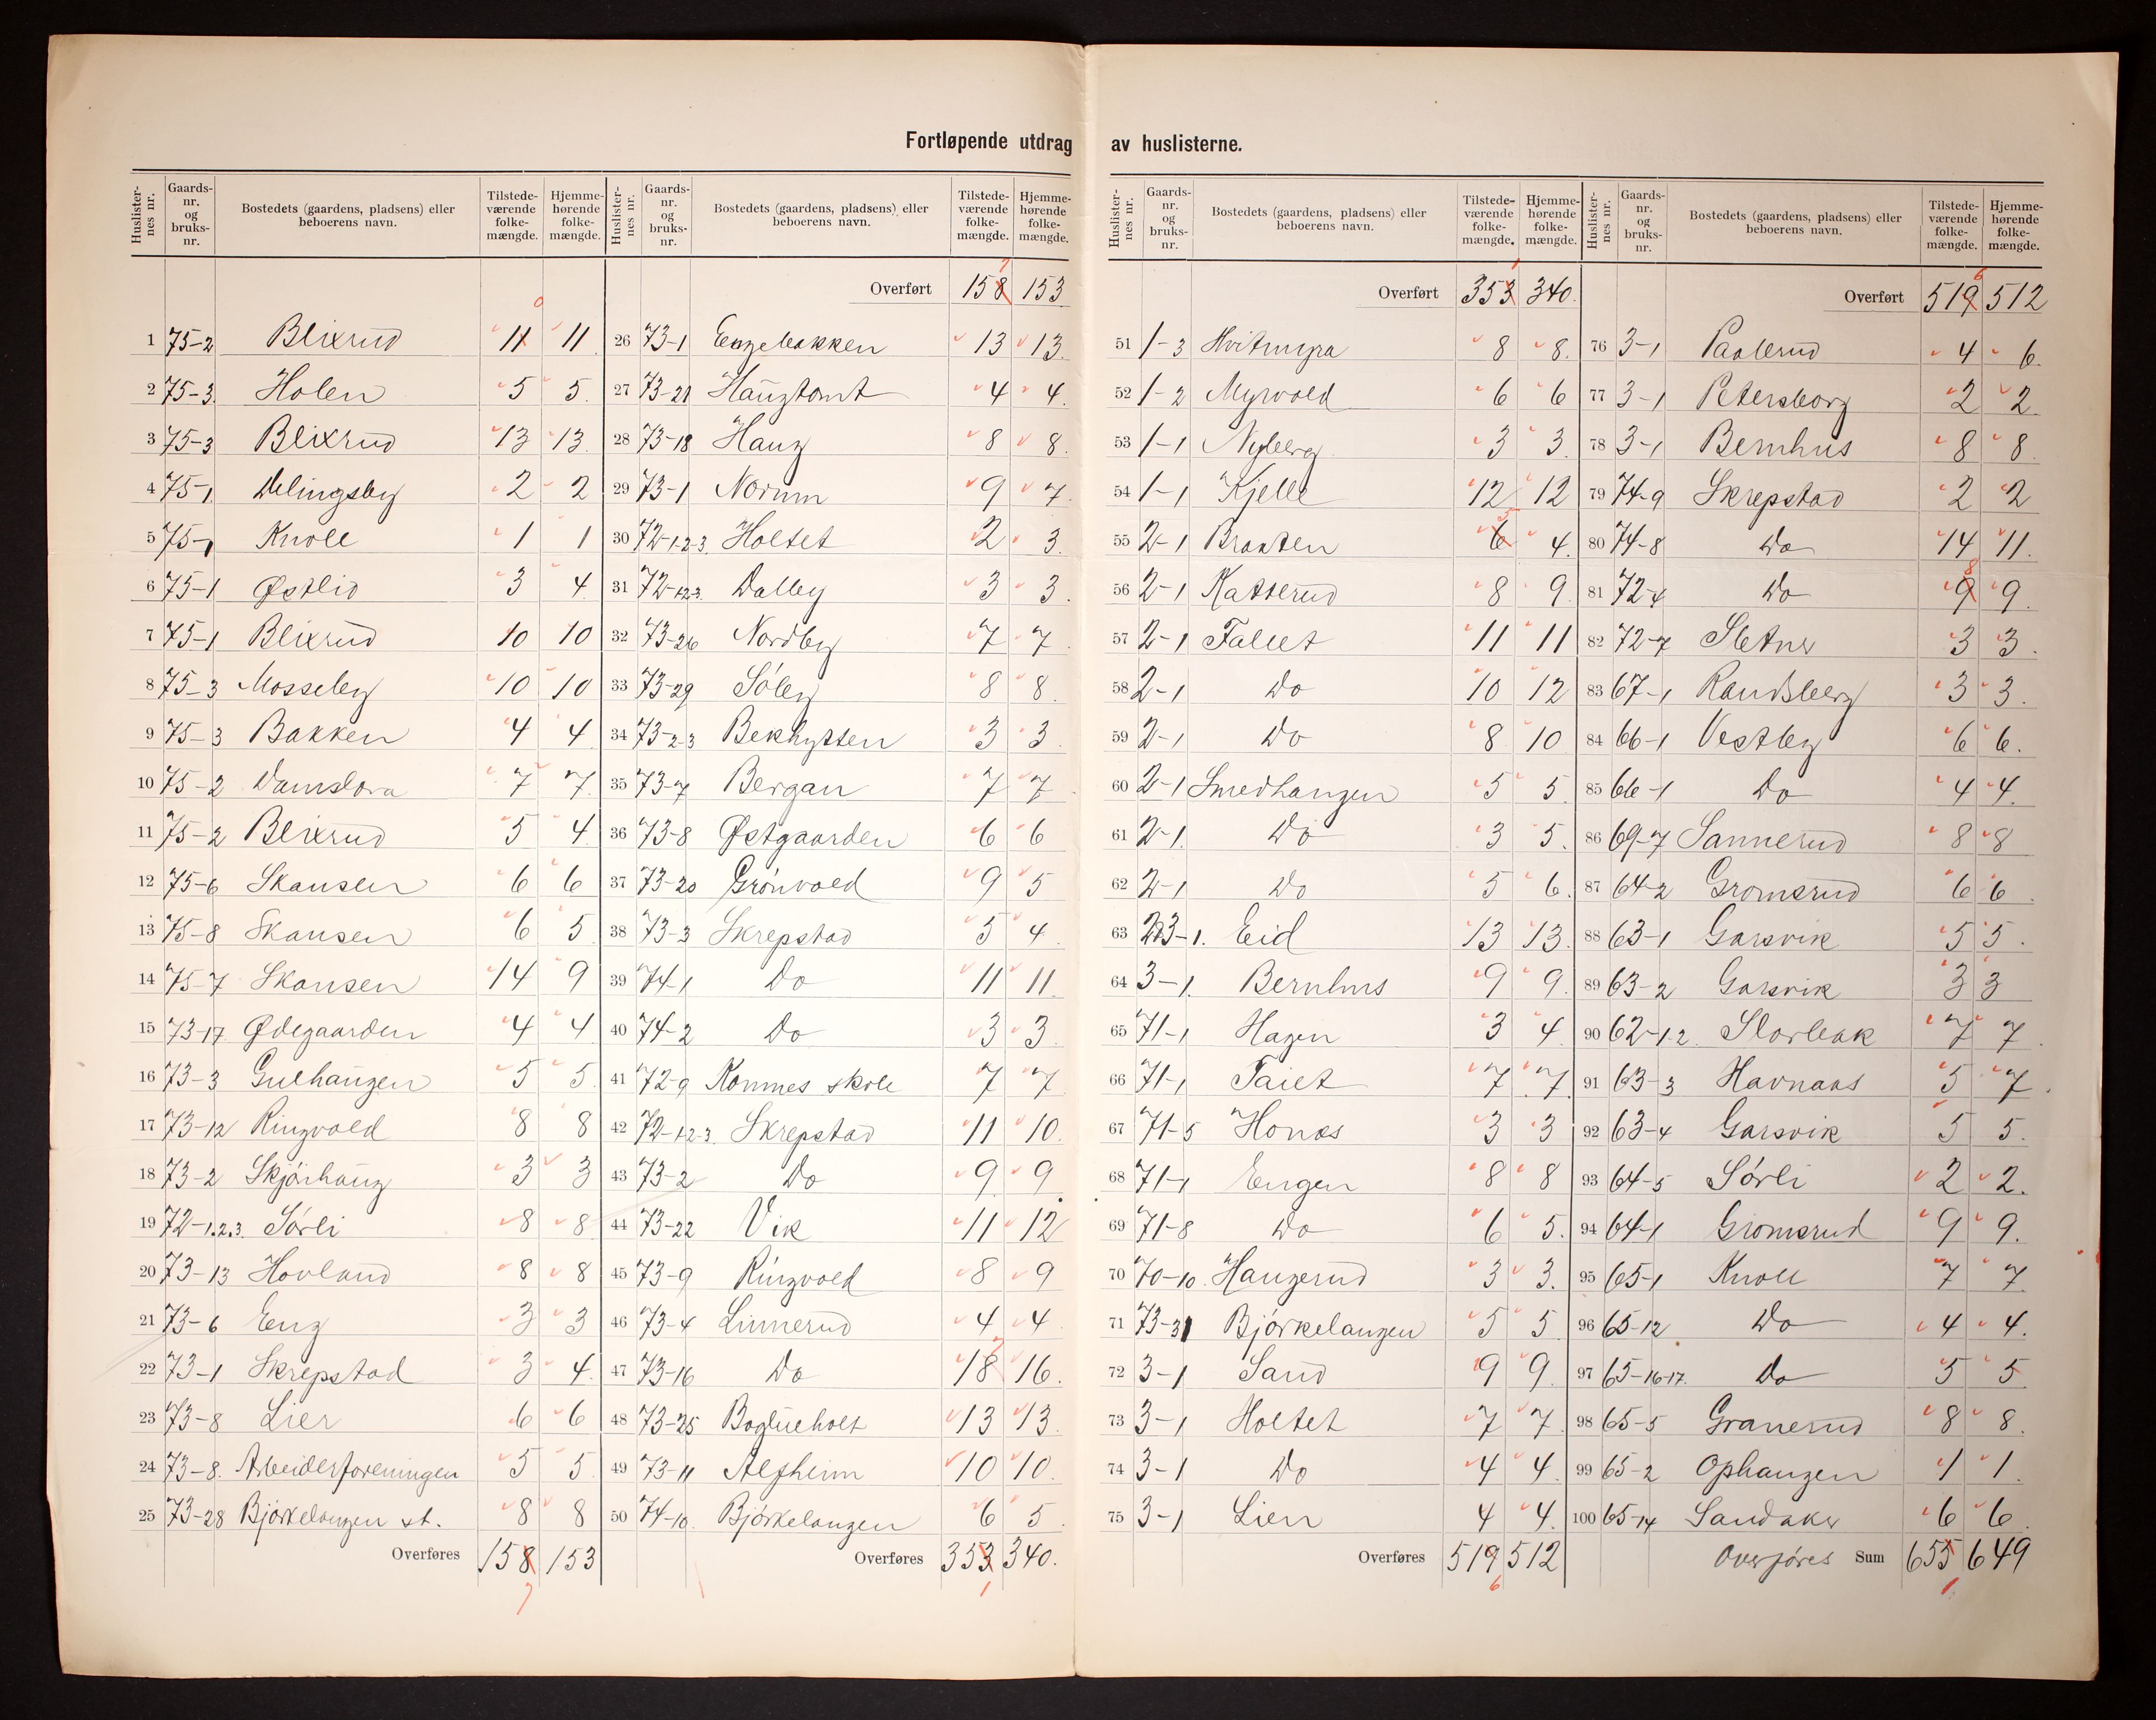 Fortløpende utdrag av huslisterne.
Huslisternes nr. Gaardsnr. og bruksnr. Bostedets (gaardens, pladsens) eller beboerens navn. Tilstedeværende folkemængde. Hjemmehørende folkemængde.
1 75-2 Blixrud 11 0 11
2 75-3 Holen 5 5
3 75-3 Blixrud 13 13
4 75-1 Delingsby 2 2
5 75-1 Knoll 1 1
6 75-1 Østlid 3 4
7 75-1 Blixrud 10 10
8 75-3 Mosseby 10 10
9 75-3 Bakken 4 4
10 75-2 Damslora 7 7
11 75-2 Blixrud 5 4
12 75-6 Skansen 6 6
13 75-8 Skansen 6 5
14 75-7 Skansen 14 9
15 73-17 Ødegaarden 4 4
16 73-3 Gulhaugen 5 5
17 73-12 Ringvold 8 8
18 73-2 Skjørhaug 3 3
19 72-1.2.3. Sørli 8 8
20 73-13 Hovland 8 8
21 73-6 Eng 3 3
22 73-1 Skrepstad 3 4
23 73-8 Lier 6 6
24 73-8. Arbeiderforeningen 5 5
25 73-28 Bjørkelangen st. 8 8
Overføres 158 7 153
Huslisternes nr. Gaardsnr. og bruksnr. Bostedets (gaardens, pladsens) eller beboerens navn. Tilstedeværende folkemængde. Hjemmehørende folkemængde.
Overført 158 7 153
26 73-1 Engebakken 13 13
27 73-21 Haugtomt 4 4
28 73-18 Haug 8 8
29 73-1 Norum 9 7
30 72-1-2-3. Holtet 2 3
31 72-1-2-3. Dalby 3 3
32 73-26 Nordby 7 7
33 73-29 Søby 8 8
34 73-2-3 Bekhytten 3 3
35 73-7 Bergan 7 7
36 73-8 Østgaarden 6 6
37 73-20 Grønvold 9 5
38 73-3 Skrepstad 5 4
39 74-1 Do 11 11
40 74-2 Do 3 3
41 72-9 Kommes skole 7 7
42 72-1-2-3. Skrepstad 11 10
43 73-2 Do 9 9
44 73-22 Vik 11 12
45 73-9 Ringvold 8 9
46 73-4 Linnerud 4 4
47 73-16 Do 18 7 16
48 73-25 Boglieholt 13 13
49 73-11 Alfheim 10 10
50 74-10. Bjørkelangen 6 5
Overføres 353 1 340.
Huslisternes nr. Gaardsnr. og bruksnr. Bostedets (gaardens, pladsens) eller beboerens navn. Tilstedeværende folkemængde. Hjemmehørende folkemængde.
Overført 353 1 340.
51 1-3 Hvitmyra 8 8
52 1-2 Myrvold 6 6
53 1-1 Nyberg 3 3
54 1-1 Kjelle 12 12
55 2-1 Braaten 6 5 4
56 2-1 Katterud 8 9
57 2-1 Fallet 11 11
58 2-1 Do 10 12
59 2-1 Do 8 10
60 2-1 Smedhaugen 5 5
61 2-1. Do 3 5
62 2-1 Do 5 6
63 3-1. Eid 13 13
64 3-1. Bernhus 9 9
65 71-1 Hagen 3 4
66 71-1 Taiet 7 7
67 71-5 Honas 3 3
68 71-1 Engen 8 8
69 71-8 Do 6 5
70 70-10. Haugerud 3 3
71 73-31 Bjørkelangen 5 5
72 3-1 Sand 9 9
73 3-1 Holtet 7 7
74 3-1 Do 4 4
75 3-1 Lien 4 4
Overføres 519 6 512
Huslisternes nr. Gaardsnr. og bruksnr. Bostedets (gaardens, pladsens) eller beboerens navn. Tilstedeværende folkemængde. Hjemmehørende folkemængde.
Overført 519 6 512
76 3-1 Paalerud 4 6
77 3-1 Petersborg 2 2
78 3-1 Bernhus 8 8
79 74-9 Skrepstad 2 2
80 74-8 Do 14 11
81 72-4 Do 9 8 9
82 72-7 Sletner 3 3
83 67-1 Randsberg 3 3
84 66-1 Vestby 6 6
85 66-1 Do 4 4
86 69-7 Sannerud 8 8
87 64-2 Gromsrud 6 6
88 63-1 Garsvik 5 5
89 63-2 Garsvik 3 3
90 62-1.2. Storbak 7 7
91 63-3 Havnaas 5 7
92 63-4 Garsvik 5 5
93 64-5 Sørli 2 2
94 64-1 Gromsrud 9 9
95 65-1 Knoll 7 7
96 65-12 Do 4 4
97 65-16-17. Do 5 5
98 65-5 Granerud 8 8
99 65-2 Ophaugen 1 1
100 65-14 Sandaker 6 6
Overføres Sum 655 1 649